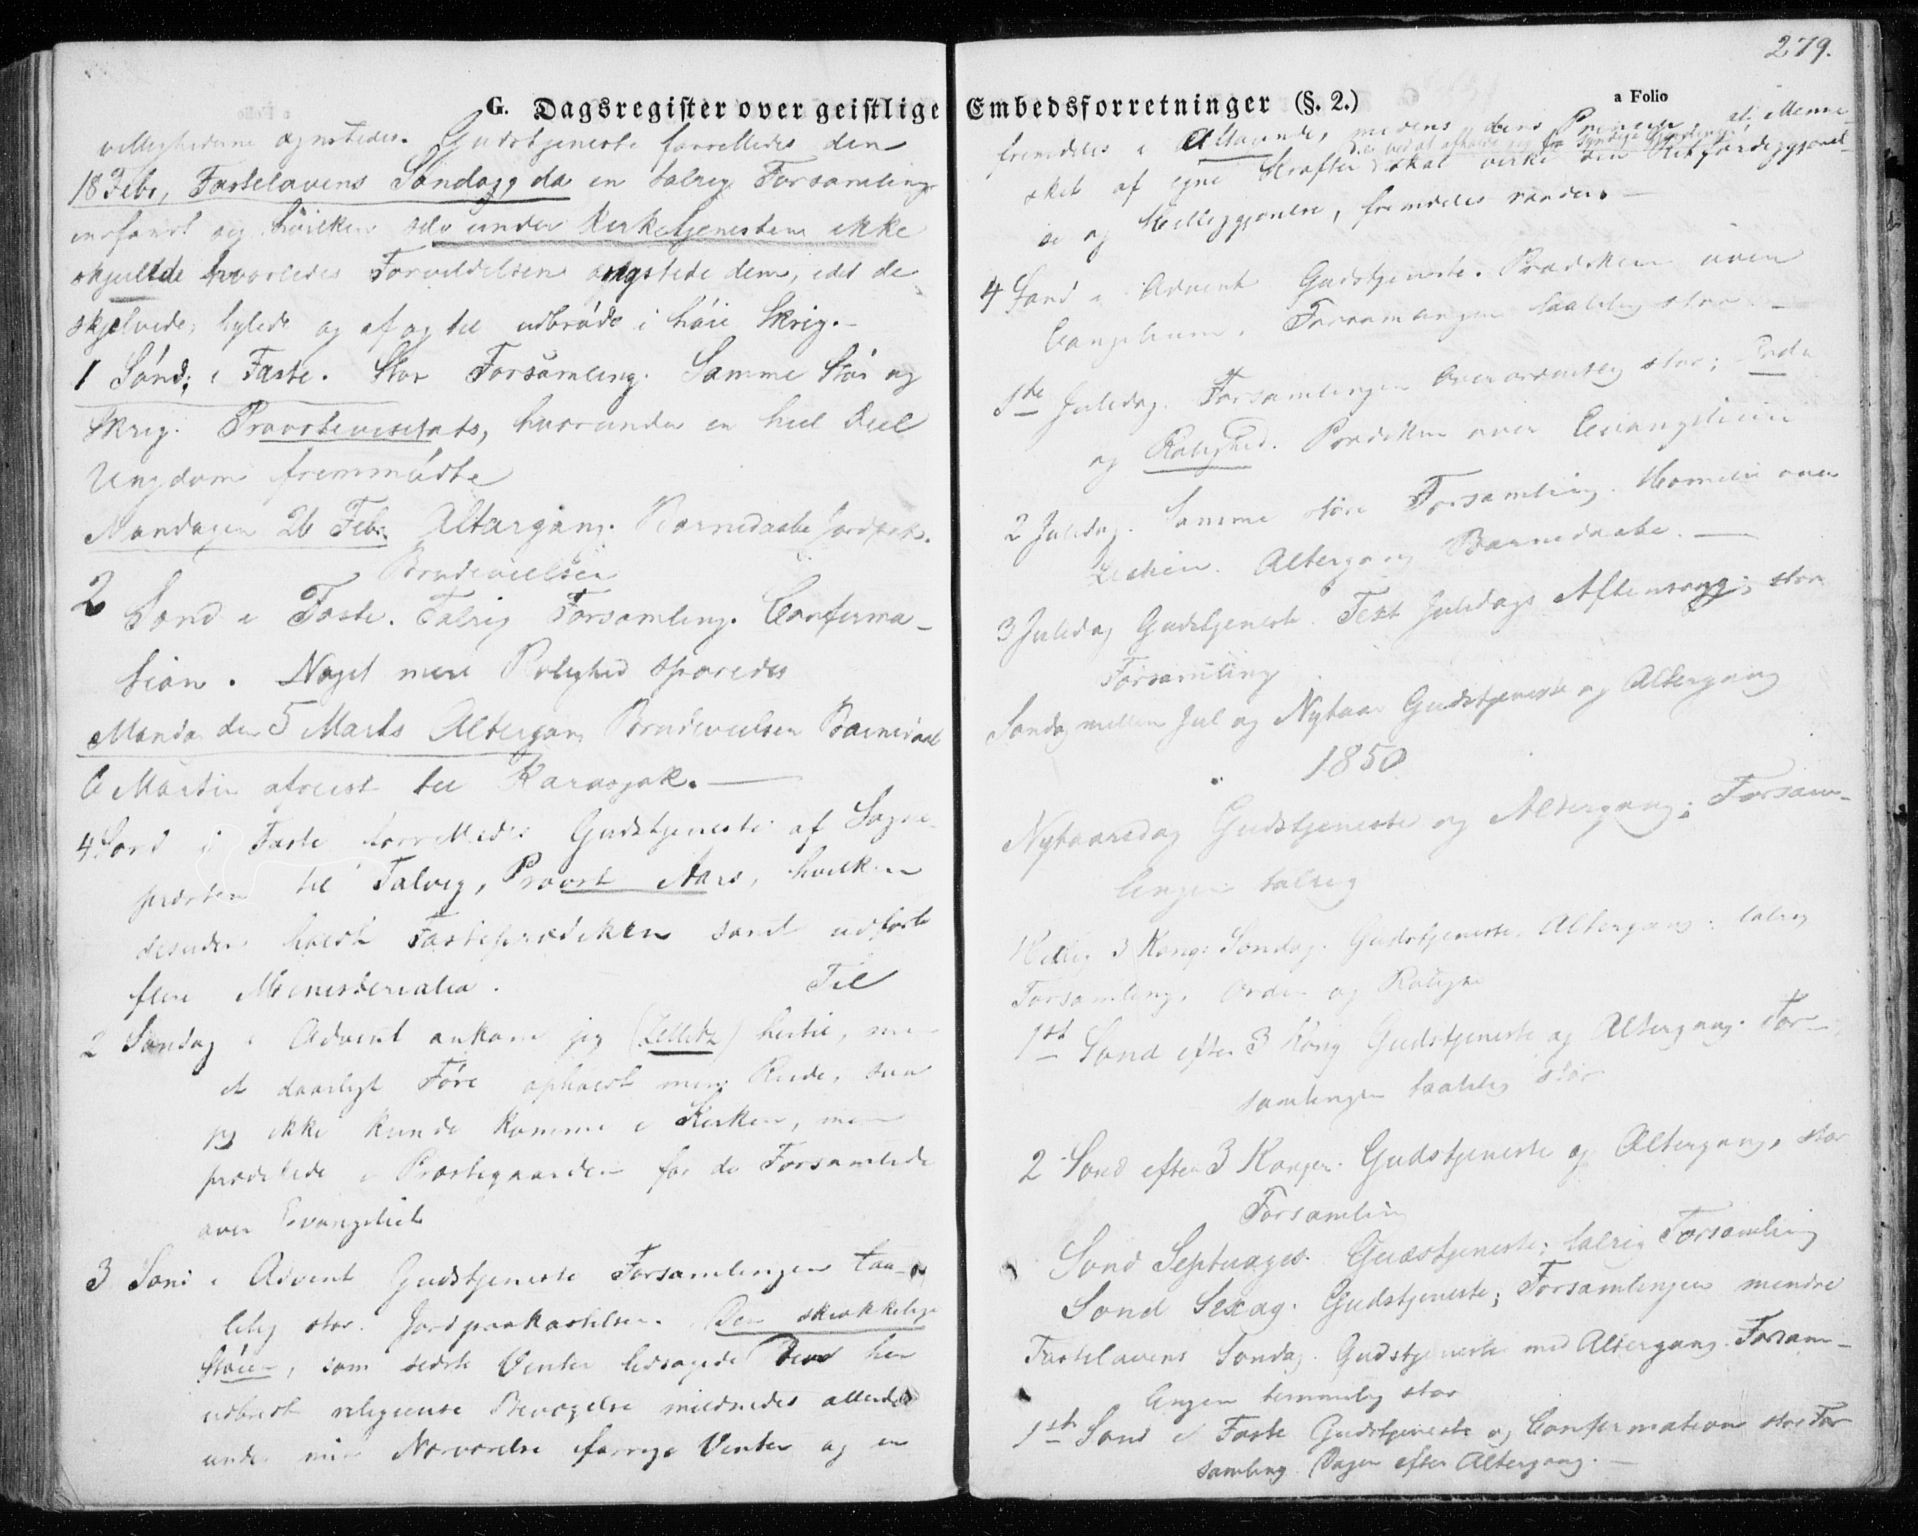 G. Dagsregister over geistlige
villighedene agnstedes. Gudstjeneste forrettedes den
18 Febr, Fastelavens Søndag, da en talrig Forsamling
indfandt sig hvilken selv under Kirketjenesten ikke
skjulede hvorledes Forvildelsen ængstede dem, idet de
skjælvede, hylede og af og til udbrøde i høie Skrig.-
1 Sønd: i Faste. Stor Forsamling. Samme Støi og
Skrig. Provstevisitats, hvorunder en heel Deel
Ungdom fremmødte
Mandagen 26 Febr. Altergang. Barnedaabe Jordpak.
Brudevielser
2 Sønd i Faste. Talrig Forsamling. Confirma-
tion. Noget mere Rolighed sporedes
Manda den 5 Marts Altergang Brudevielser Barnedaab
6 Martii afreist til Karasjok. —
4 Sønd i Faste forrettedes Gudstjeneste af Sogne
præsten til Talvig, Provst Aars, hvilken
desuden holdt Fasteprædiken samt udførte
flere Ministerialia. Til
2 Søndag i Advent ankom jeg (Zetlitz) hertil, men
et daarligt Føre opholdt min Reise, saa
jeg ikke kunde komme i Kirken, men
prædikede i Præstegaarden for de Forsamlede
over Evangeliet
3 Sønd i Advent Gudstjeneste Forsamlingen taa-
lelig stor. Jordpaakastelse. Den skrækkelige
Støien, som sidste Vinter ledsagede den her
udbrudt religieuse Bevægelse mildnedes allerede
under min Nærværelse forrige Vinter og er
279.
Embedsforretninger (§. 2.)
a Folio
fremdeles i Aftagende, medens dens Princip, at Menne
der ved at afholde sig fra syndige Gjerninger
sket af egne Kræfter skal virke sin Retfærdiggjørel-
se og Helliggjørelse, fremdeles raader. —
4 Sønd i Advent Gudstjeneste. Prædiken over
Evangelium. Forsamlingen taalelig stor —
1ste Juledag. Forsamlingen overordentlig stor; Orden
og Rolighed. Prædiken over Evangelium
2 Juledag. Samme store Forsamling. Homilie over
Lectien. Altergang Barnedaabe. —
3 Juledag Gudstjeneste. Text Juledags Aftensang; stor
Forsamling
Søndag mellem Jul og Nytaar Gudstjeneste og Altergang
1850
Nytaarsdag Gudstjeneste og Altergang; Forsam-
lingen talrig
Hellig 3 Kong: Søndag. Gudstjeneste. Altergang; talrig
Forsamling, Orden og Rolighed
1st Sønd efter 3 Kong Gudstjeneste og Altergang. For-
samlingen taalelig stor
2 Sønd efter 3 Konger. Gudstjeneste og Altergang, stor
Forsamling
Sønd Septuages. Gudstjeneste; talrig Forsamling
Sønd Sexag. Gudstjeneste; Forsamlingen mindre
Fastelavens Søndag. Gudstjeneste med Altergang. Forsam-
lingen temmelig stor
1st Sønd i Faste Gudstjeneste og Confirmation stor For
samling. Dagen efter Altergang. —